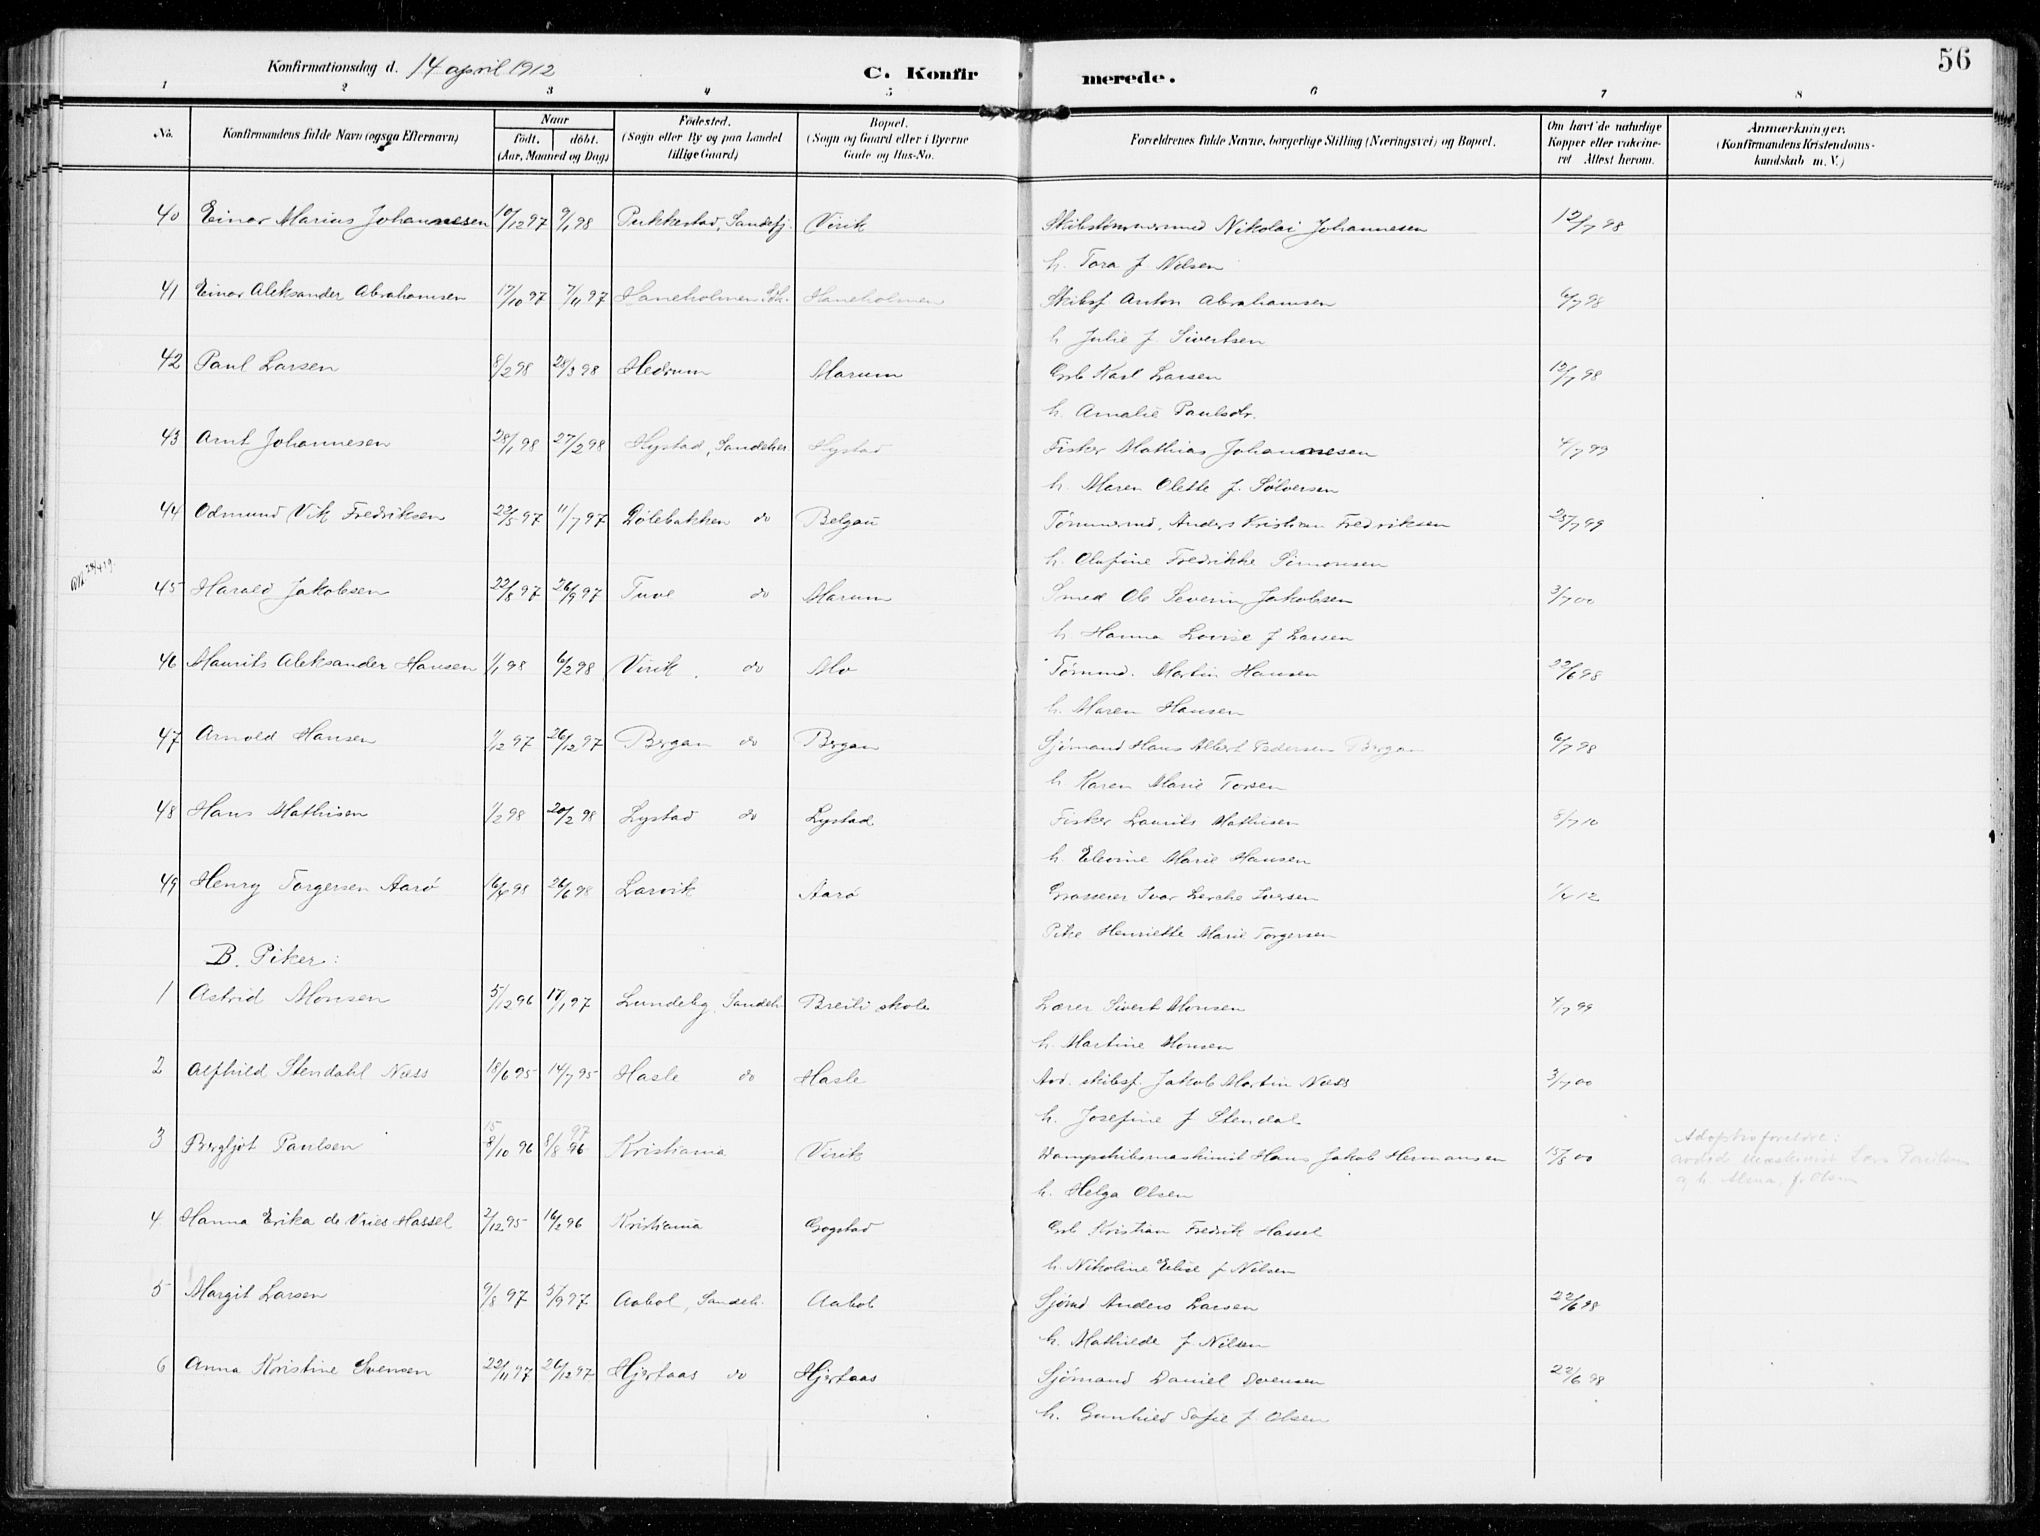 56
Konfirmationsdag d. 14 april 1912
C. Konfirmerede.
1 2 3 4 5 6 7 8
No. Konfirmandens fulde Navn (ogsaa Efternavn) Naar født. døbt. (Aar, Maaned og Dag) Fødested. (Sogn eller By og paa Landet tillige Gaard) Bopæl. (Sogn og Gaard eller i Byerne Gade og Hus-No. Forældrenes fulde Navne, borgerlige Stilling (Næringsvei) og Bopæl. Om havt de naturlige Kopper eller vakcineret Attest herom. Anmærkninger, (Konfirmandens Kristendomskundskab m. V.)
40 Einar Marius Johannesen 10/12 97 9/1 98 Pukkestad, Sandefj. Virik Skibstømmermand Nikolai Johannesen 12/7 98
h. Tora f. Nilsen
41 Einar Aleksander Abrahamsen 17/10 97 7/11 97 Haneholmen Haneholmen Skibsf. Anton Abrahamsen 6/7 98
h. Julie f. Sivertsen
42 Paul Larsen 8/2 98 28/3 98 Hedrum Marum Grb Karl Larsen 12/7 98
h. Amalie Paulsdr.
43 Arnt Johannesen 28/1 98 27/2 98 Hystad, Sandeher Hystad Fisker Mathias Johannesen 4/7 99
h. Maren Olette f. Sölversen
44 Odmund Vik Fredriksen 22/5 97 11/7 97 Dölebakken do Belgau Tömmermd, Anders Kristian Fredriksen 25/7 99
h. Olafine Fredrikke Simonsen
45 Harald Jakobsen 22/8 97 26/9 97 Tuve do Marum Smed Ole Severin Jakobsen 3/7 00
h. Hanna Lovise f Larsen
46 Maurits Aleksander Hansen 1/1 98 6/2 98 Virik do Mo Tömmd. Martin Hansen 22/6 98
h. Maren Hansen
47 Arnold Hansen 1/12 97 26/12 97 Brgan do Brgan Sjömand Hans Albert Pedersen Brgan 6/7 98
h. Karen Marie Torsen
48 Hans Mathisen 1/2 98 20/2 98 Lystad do Lystad Fisker Laurits Mathisen 8/7 10
h. Elevine Marie Hansen
49 Henry Torgersen Aarö 16/4 98 26/6 98 Larvik Aarö Grosserer Ivar Lerche Iversen 1/4 12
Pike Henriette Marie Torgersen
B. Piker:
1 Astrid Monsen 5/12 96 17/1 97 Lundeby, Sandeh. Breili skole Lærer Sivert Monsen 4/7 99
h. Martine Monsen
2 Alfhild Stendahl Næss 18/6 95 14/7 95 Hasle do Hasle Avd. skibsf. Jakob Martin Næss 3/7 00
h. Josefine f Stendal
3 Bergljot Paulsen 8/10 96 8/8 96 97 Kristiania Virik Dampskibsmaskinist Hans Jakob Hermansen 15/8 00 Adoptivforeldre:
h. Helga Olsen
4 Hanna Erika de Vries Hassel 2/12 95 16/2 96 Kristiania Gogstad Grb Kristian Fredrik Hassel
h. Nikoline Elise f Nilsen
5 Margit Larsen 9/8 97 5/9 97 Aabol, Sandeh. Aabol Sjömd Anders Larsen 22/6 98
h. Mathilde f Nilsen
6 Anna Kristine Svensen 22/11 97 26/12 97 Hjertaas do Hjertaas Sjömand Daniel Svensen 22/6 98
h. Gunhild Sofie f. Olsen